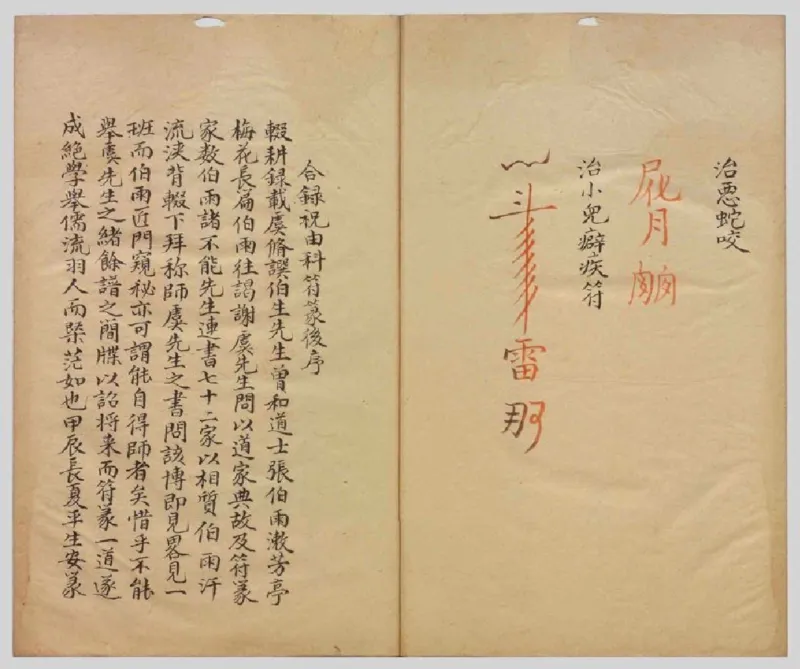 治悪蛇咬
月
治小兒癖疾符
雷那
合録祝由科符篆後序
輟耕録載虞脩譔伯生先生曽和道士張伯雨漱芳亭
梅花長扁伯雨往謁謝虞先生問以道家典故及符篆
家数伯雨諸不能先生連書七十二家以相質伯雨汗
流浹背輟下拜称師虞先生之書問該博即見畧見一
班而伯雨匠門窺秘亦可謂能自得師者矣惜乎不能
舉虞先生之緒餘譜之簡牒以詔将来而符篆一道遂
成絶學舉儒流羽人而槩茫如也甲辰長夏平生安篆